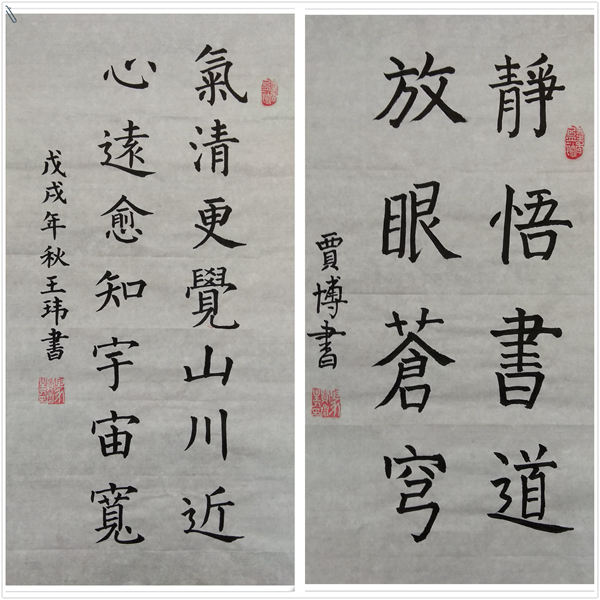 氣清更覺山川近
心遠愈知宇宙寬
戊戌年秋王玮書
靜悟書道
放眼蒼穹
賈博書